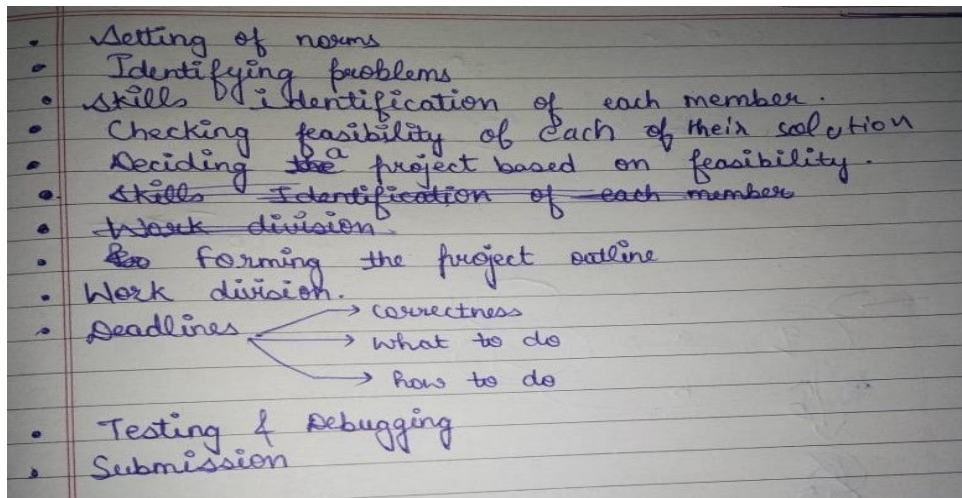 • Setting of norms
• Identifying problems
• Skills identification of each member.
• Checking feasibility of each of their soolution
• Deciding the a project based on feasibility.
• Skills Identification of each member
• Work division.
• Forming the project outline
• Work division.
• Deadlines → correctness
→ what to do
→ how to do
• Testing & Debugging
• Submission